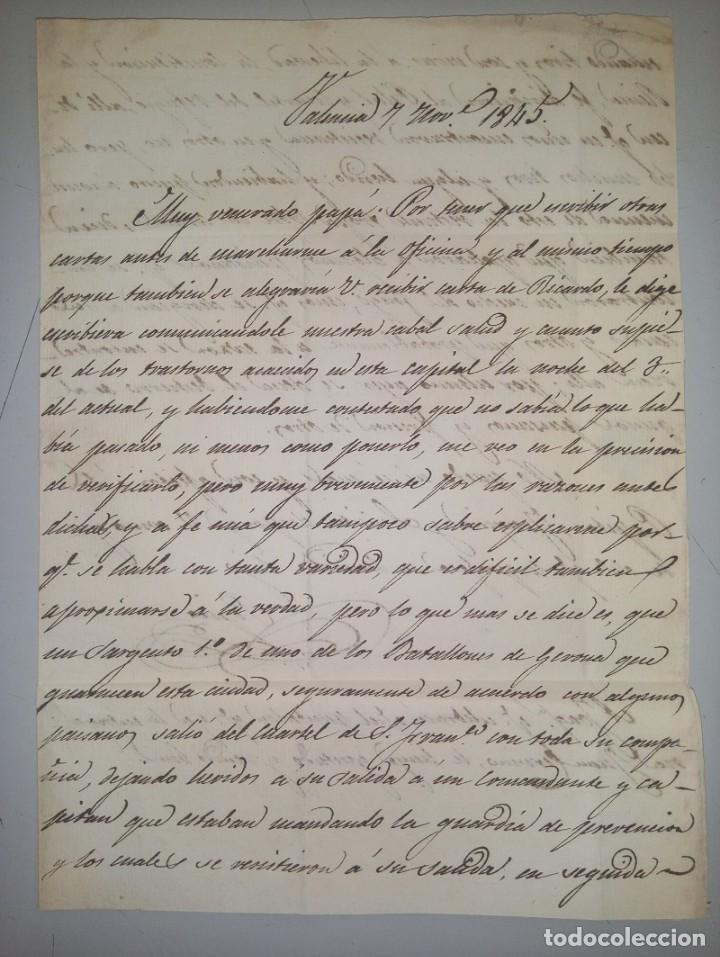 Valencia 7 Nov.e 1845.
Muy venerado pappá: Por tener que escribir otras
cartas antes de marcharme á la oficina y al mismo tiempo
porque tambien se alegraría V. recibir carta de Ricardo, le dige
escribiera comunicandole nuestra cabal salud y cuanto supie-
se de los trastornos acaecidos en esta capital la noche del 3..
del actual, y habiendome contestado que no sabía lo que ha-
bía pasado, ni menos como ponerlo, me veo en la precision
de verificarlo, pero muy brevemente por las razones antes
dichas, y a fe mía que tampoco sabré esplicarme por-
q.e se habla con tanta variedad, que es dificil tambien
aproximarse á la verdad, pero lo que mas se dice es, que
un Sargento 1.o de uno de los Batallones de Gerona que
guarnecen esta ciudad, seguramente de acuerdo con algunos
paisanos salió del cuartel de S. Fran.co con toda su compa-
ñia, dejando heridos a su salida á un comandante y ca-
pitan que estaban mandando la guardia de prevencion
y los cuales se resistieron á su salida, en seguida
todocoleccion.net